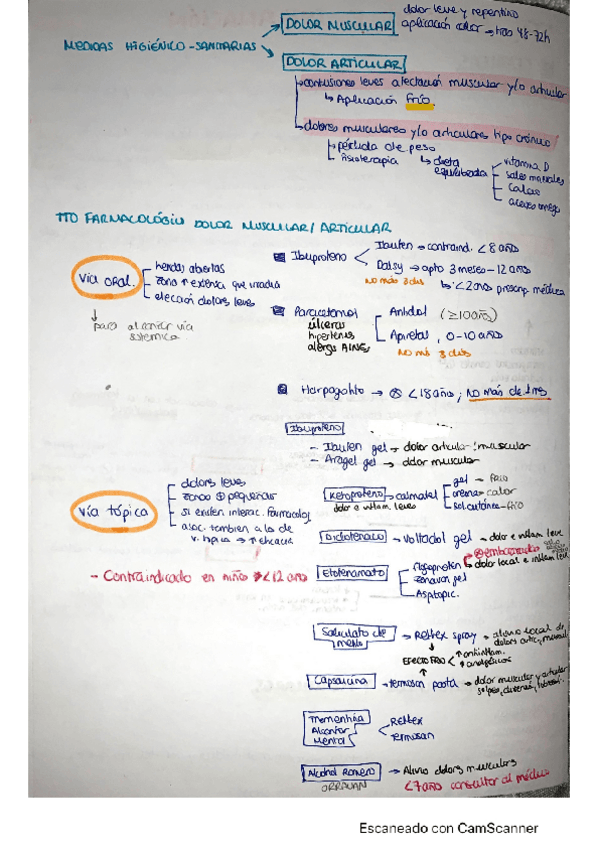 dolor leve y repentino
MEDIDAS HIGIÉNICO-SANITARIAS
DOLOR MUSCULAR
aplicación calor → tras 48-72h
DOLOR ARTICULAR
contusiones leves afectación muscular y/o articular
↳ Aplicación Frío.
dolores musculares y/o articulares tipo crónico
pérdida de peso
fisioterapia
↳ dieta equilibrada
vitamina D
sales minerales
Calcio
TTO FARMACOLÓGICO DOLOR MUSCULAR/ARTICULAR
Vía oral.
heridas abiertas
zona ↑ extensa que irradia
elección dolores leves
↓
para alcanzar vía
sistémica
Ibuprofeno
Ibufen → contraind. < 8 años
Dalsy → apto 3 meses - 12 años
No más 3 días
↳ < 2 años prescrip. médica
Paracetamol
úlceras
hipertensos
alergia AINEs
Antidol (≥10 años)
Apiretal, 0-10 años
No más 3 días
Harpagofito → ⊗ < 18 años; No más de 1 mes
Ibuprofeno
- Ibufen gel → dolor articular/muscular
- Arogel gel → dolor muscular
Vía tópica
dolores leves
zonas ⊕ pequeñas
si existen interac. farmacolog
asoc. también a la de
v. tópica → ↑ eficacia
- Contraindicado en niños < 12 años
Ketoprofeno → calmatel
dolor e inflam. leves
gel → frío
crema → calor
sol. cutánea → frío
Diclofenaco → Voltadol gel → dolor e inflam leve
⊗ embarazada
Etofenamato
Flogoprofen → dolor local e inflam leve
Zenavan gel
Aspitopic.
Salicilato de metilo
→ Reflex spray → alivio local de
dolores artic, muscul
EFECTO FRÍO < ↑ antiinflam.
↑ analgésicos
Capsaicina → termosan pasta → dolor muscular y articular
Trementina
Alcanfor
Mentol
Reflex
Termosan
Alcohol Romero → Alivio dolores musculares
ORRAVAN
< 7 años consultar al médico
Escaneado con CamScanner